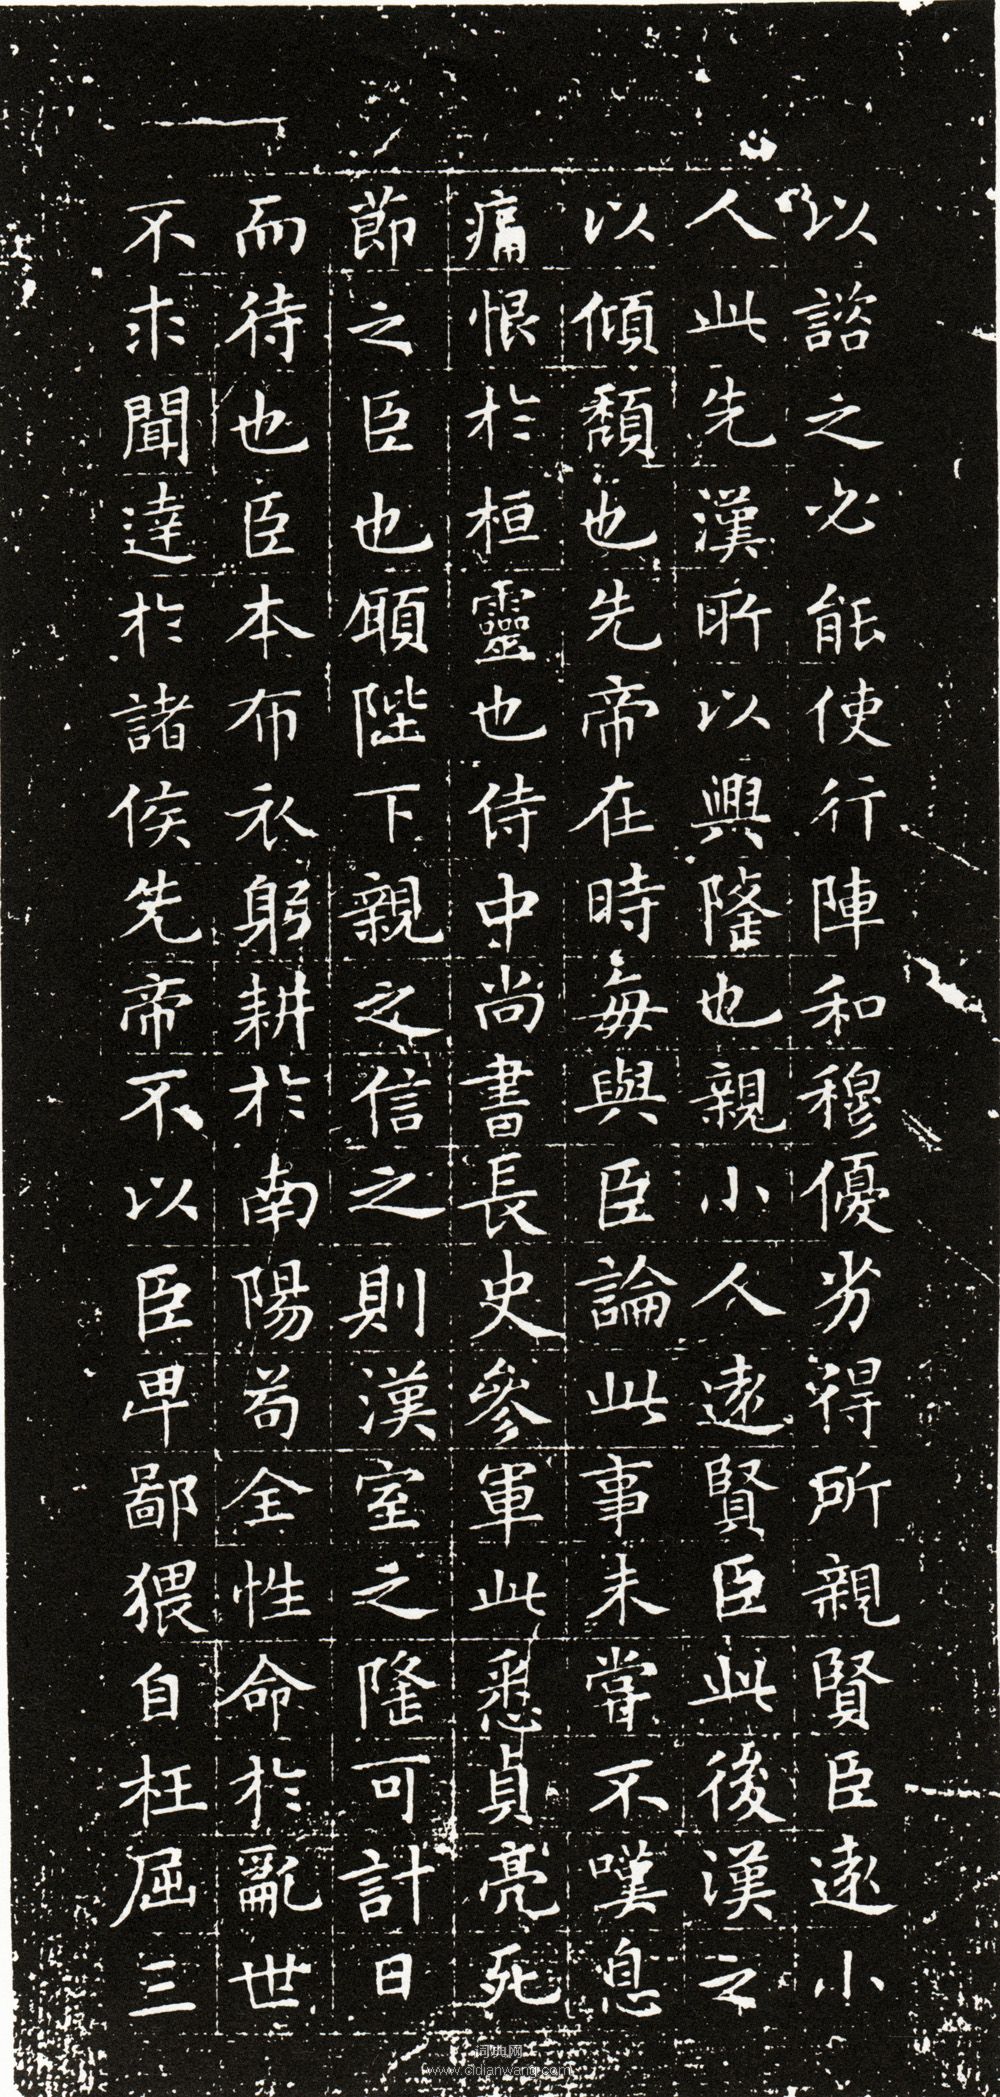 以諮之必能使行陣和穆優劣得所親賢臣遠小
人此先漢所以興隆也親小人遠賢臣此後漢之
以傾頹也先帝在時每與臣論此事未嘗不嘆息
痛恨於桓靈也侍中尚書長史參軍此悉貞亮死
節之臣也願陛下親之信之則漢室之隆可計日
而待也臣本布衣躬耕於南陽苟全性命於亂世
不求聞達於諸侯先帝不以臣卑鄙猥自枉屈三
词典网
www.cidianwang.com